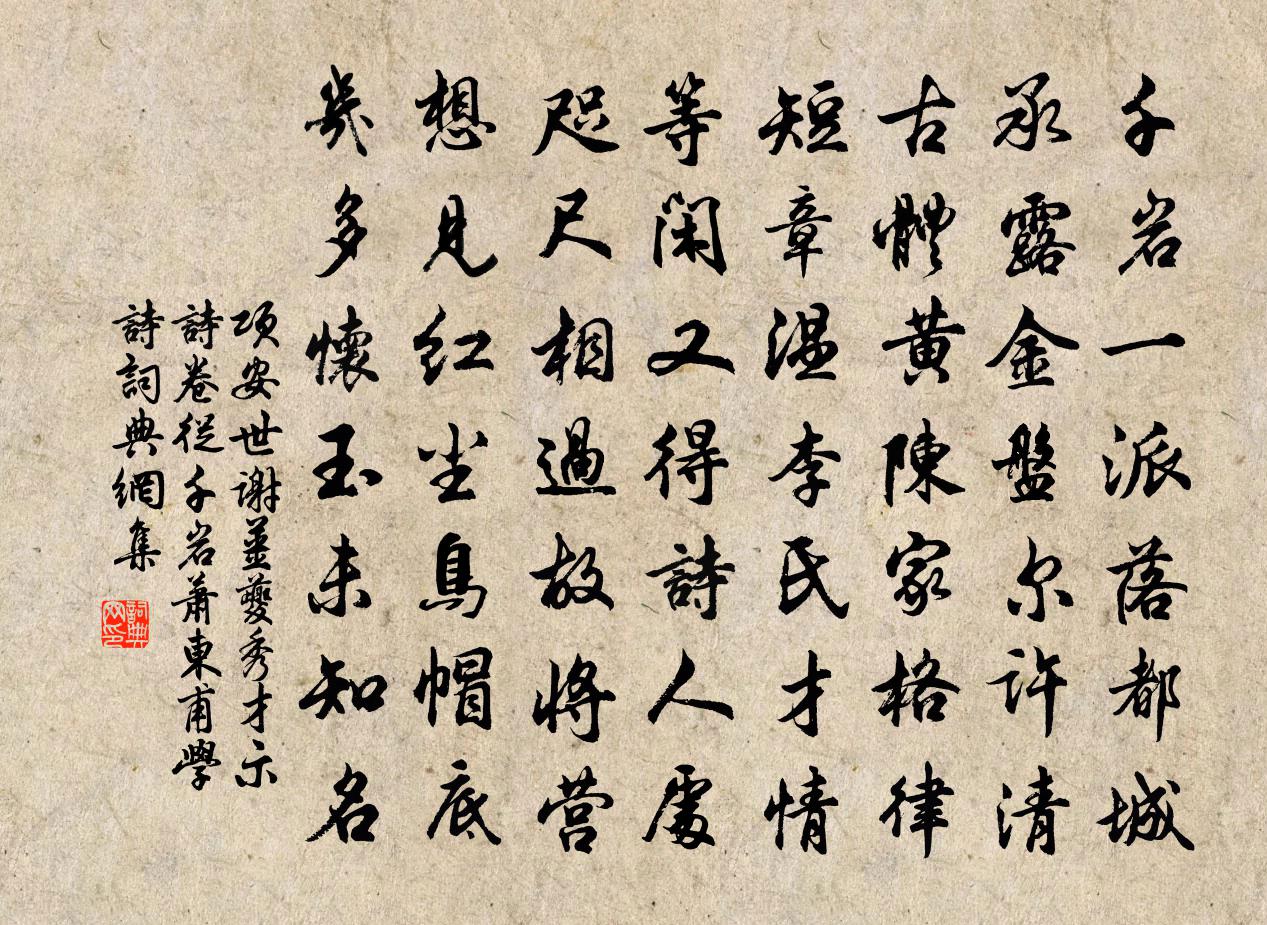 千岩一派落都城
承露金盤尔許清
古體黄陳家格律
短章温李氏才情
等閑又得詩人處
咫尺相過故將营
想見红尘烏帽底
幾多懷玉未知名
項安世謝姜夔秀才示
詩卷從千岩蕭東甫學
詩詞典網集
詞典网印